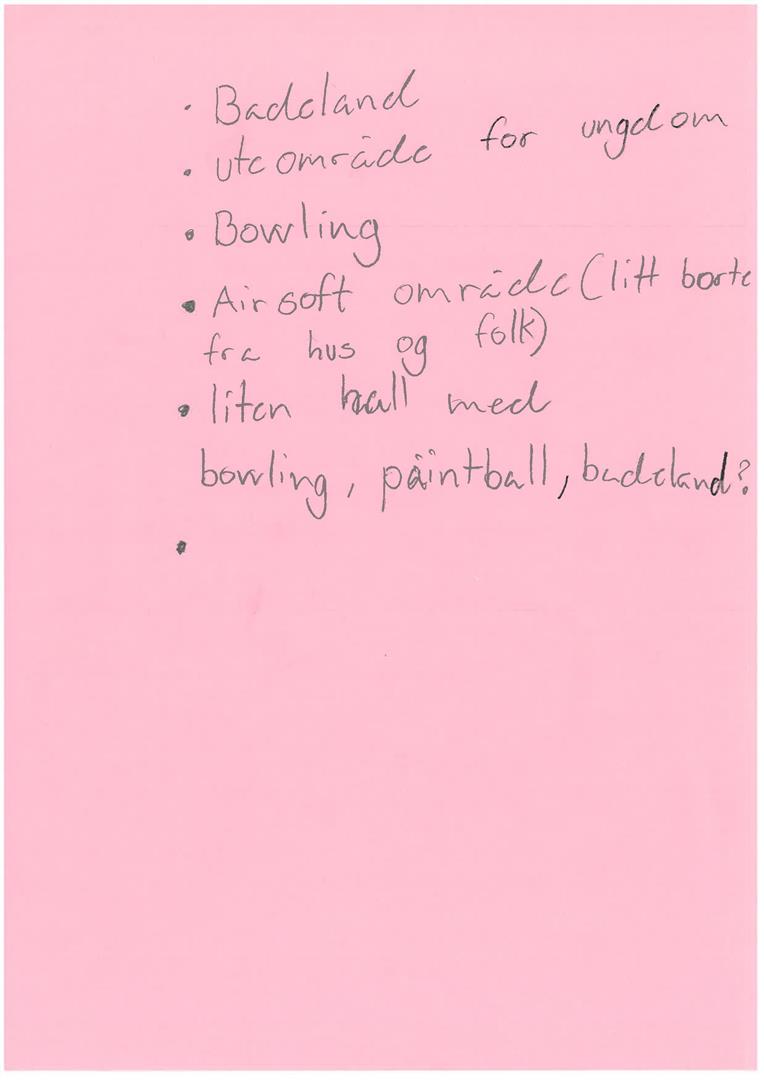 · Badeland
· uteområde for ungdom
· Bowling
· Airsoft område (litt borte
fra hus og folk)
· liten hall med
bowling, påintball, badeland?
·